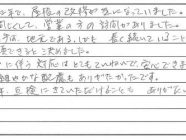 年で、屋根の改修が気になっていました。
して、営業の方の訪問がありました。
は、地元である、しかも長く続いていること
できると決めました。
に伴う対応はとてもていねいで、安心できま
細やかな配慮もありがたかったです。
年、点検にきていただけることも ありがた